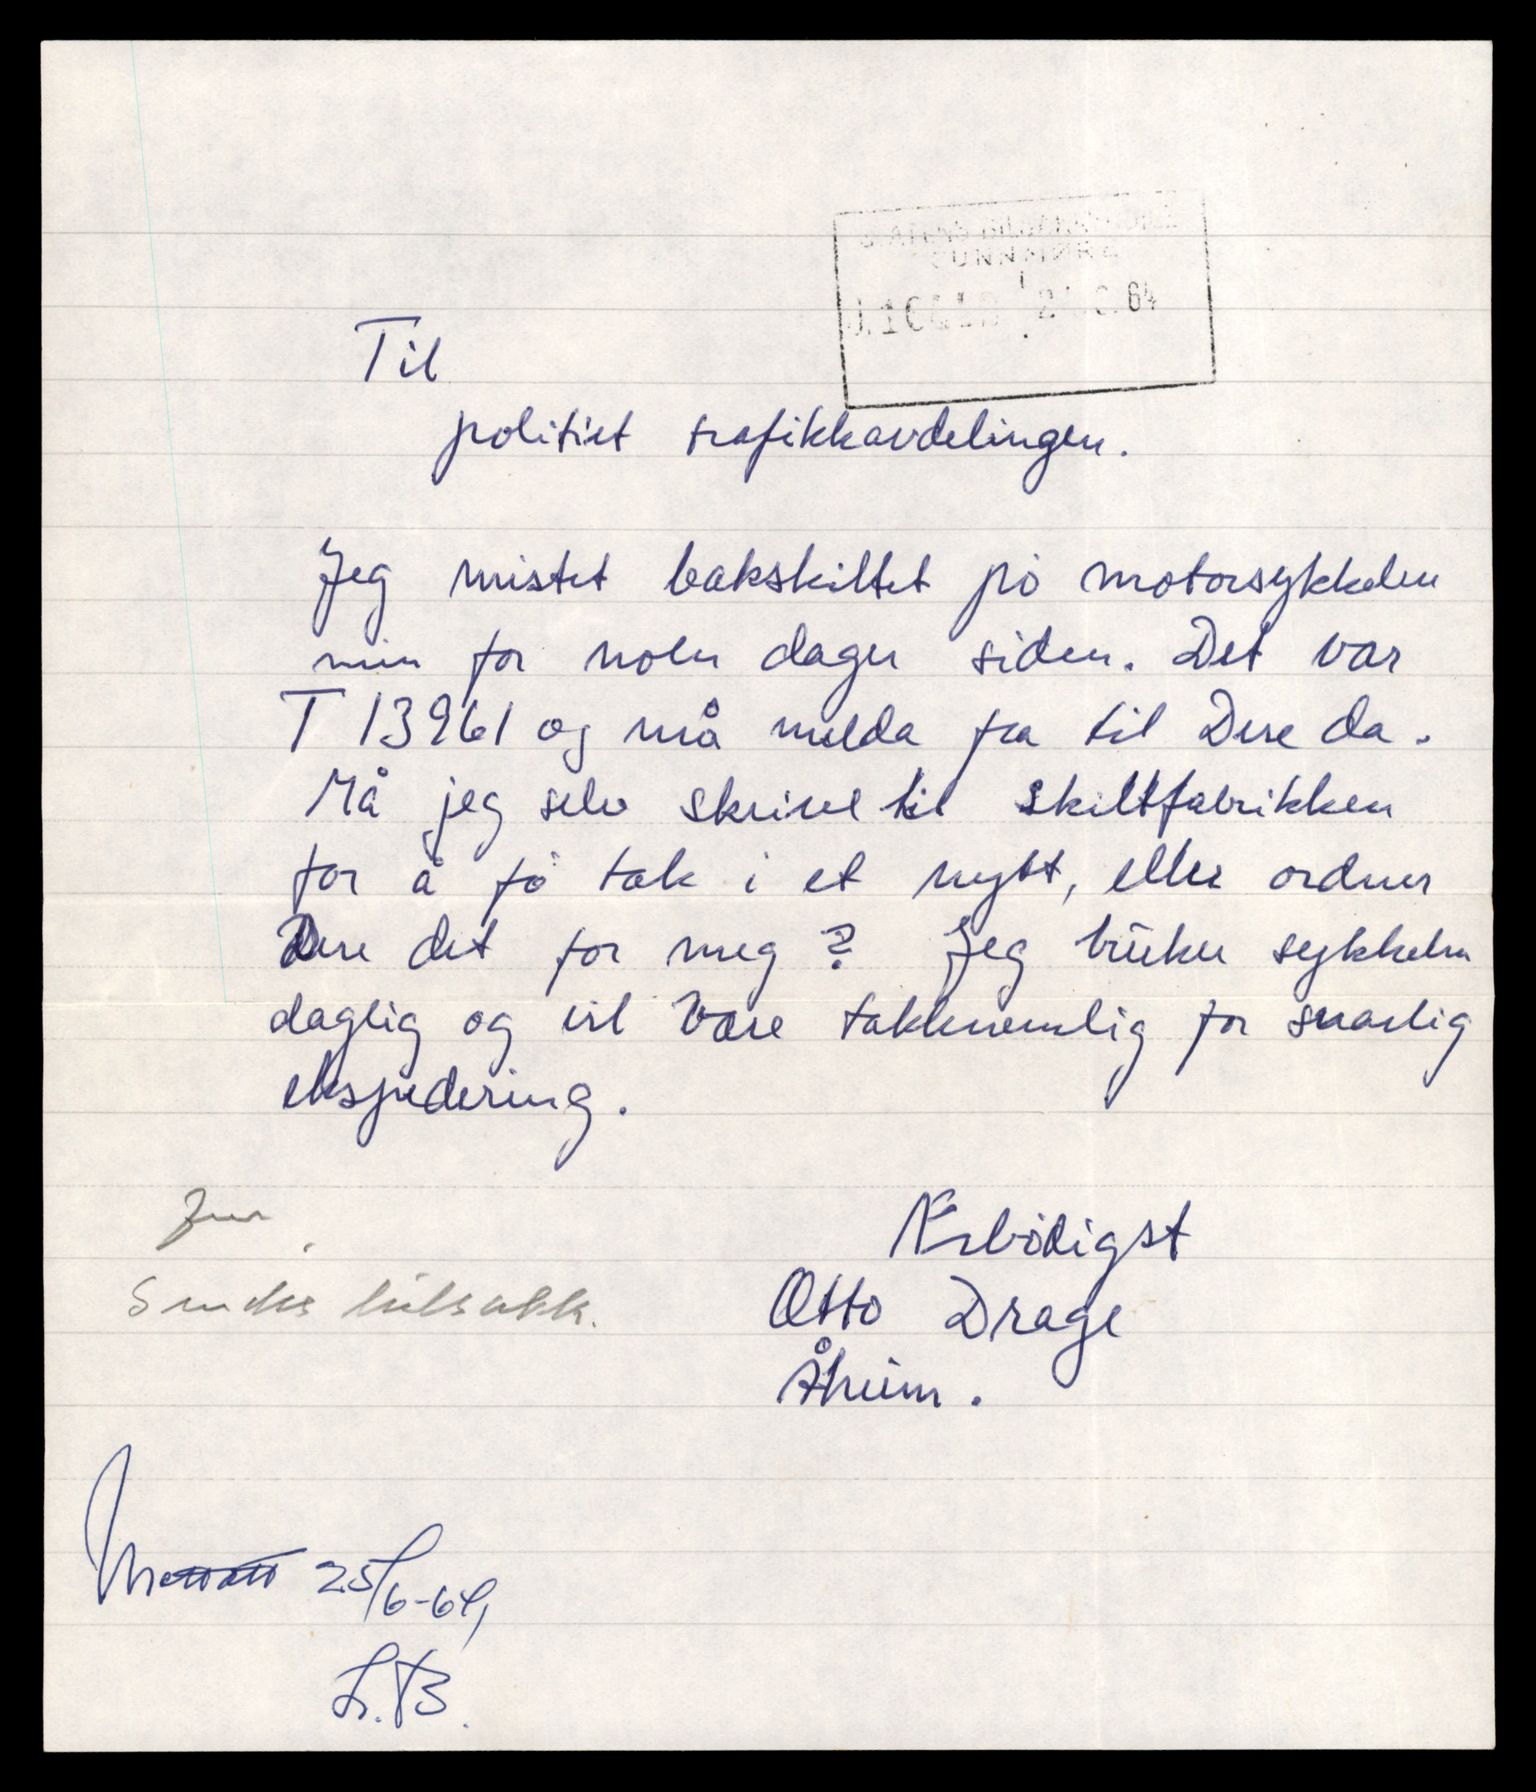 STATENS BILSAKKYNDIGE
SUNNMØRE
64
Til
politiet trafikkavdelingen.
Jeg mistet bakskiltet på motorsykkelen
min for noen dager siden. Det var
T 13961 og må melda fra til Dere da.
Må jeg selv skrive til skiltfabrikken
for å få tak i et nytt, eller ordner
Dere det for meg? Jeg bruker sykkelen
daglig og vil være takknemlig for snarlig
ekspedering.
Ærbødigst
Otto Drage
Åheim.
Sendes bilsakk.
25/6-64,